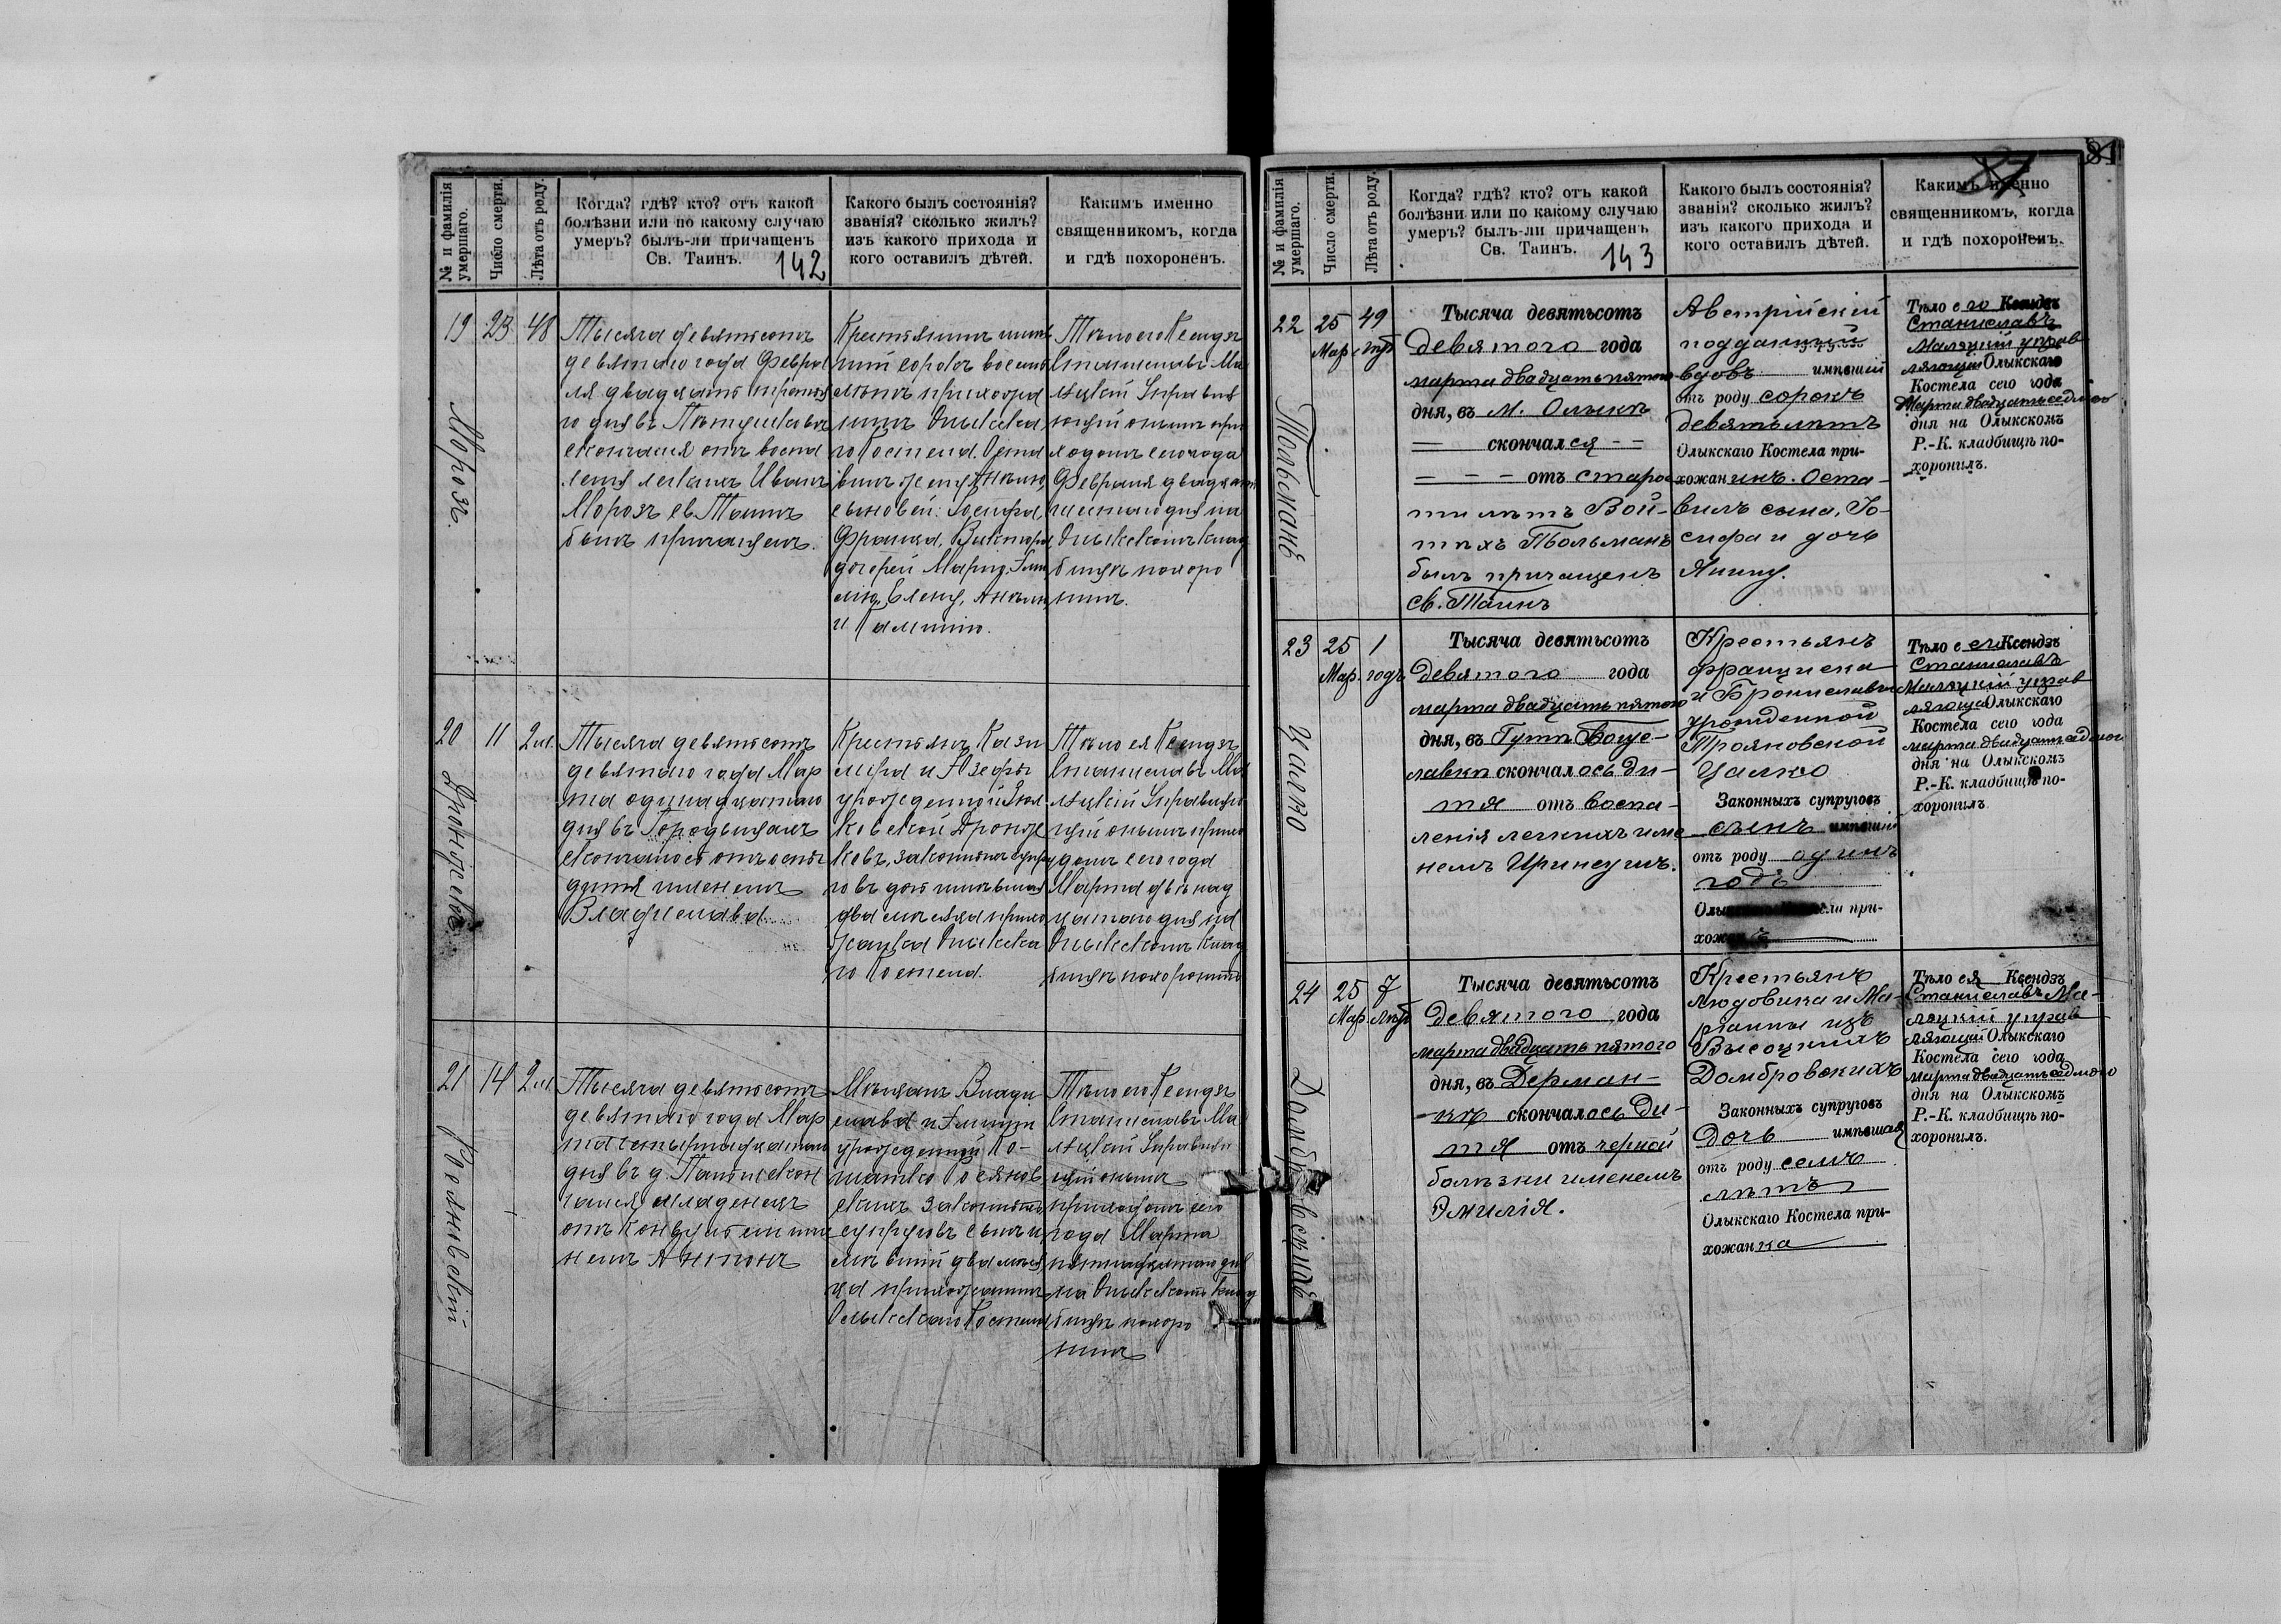 № и фамилія умершаго.
Число смерти.
Лѣта отъ роду.
Когда? гдѣ? кто? отъ какой
болѣзни или по какому случаю
умеръ? былъ-ли причащенъ
Св. Таинъ. 142
Какого былъ состоянія?
званія? сколько жилъ?
изъ какого прихода и
кого оставилъ дѣтей.
Какимъ именно
священникомъ, когда
и гдѣ похороненъ.
19 23 48
Морозъ.
Тысяча девятьсотъ
девятаго года Февра
ля двадцать третья
го дня въ
скончался отъ воспа
ленія легкихъ Иванъ
Морозъ св. Таинъ
былъ причащенъ.
Крестьянинъ имѣв
шій сорокъ восемь
лѣтъ прихожа
нинъ Олыкска
го Костела. Оста
вилъ жену
сыновей: Іосифа,
Франца, Виктора,
дочерей Марію,
Елену,
и
Тѣло его Ксендзъ
Станиславъ Ма
ляцкій Управля
ющій онымъ при
ходомъ сего года
Февраля двадцать
шестаго дня на
Олыкскомъ Клад
бищѣ похоро
нилъ.
20 11 2 м.
Тысяча девятьсотъ
девятаго года Мар
та одинадцатаго
дня въ
скончалось отъ оспы
дитя именемъ
Владислава
Крестьянъ Кази
мира и Юзефы
урожденной
ковской Дронже
ковъ, законныхъ супру
говъ дочь имѣвшая
два мѣсяца прихо
жанка Олыкска
го Костела.
Тѣло ея Ксендзъ
Станиславъ Ма
ляцкій Управляю
щій онымъ прихо
домъ сего года
Марта двѣнад
цатаго дня на
Олыкскомъ Клад
бищѣ похоронилъ
21 14 2 м.
Тысяча девятьсотъ
девятаго года Мар
та четырнадцатаго
дня въ д. скон
чался младенецъ
отъ конвульсіи име
немъ Антонъ
Мѣщанъ Влади
слава и
урожденной
законныхъ
супруговъ сынъ и
мѣвшій два мѣся
ца прихожанинъ
Олыкскаго Костела
Тѣло его Ксендзъ
Станиславъ Ма
ляцкій Управляю
щій онымъ
приходомъ сего
года Марта
пятнадцатаго дня
на Олыкскомъ Клад
бищѣ похоро
нилъ
81
№ и фамилія умершаго.
Число смерти.
Лѣта отъ роду.
Когда? гдѣ? кто? отъ какой
болѣзни или по какому случаю
умеръ? былъ-ли причащенъ
Св. Таинъ. 143
Какого былъ состоянія?
званія? сколько жилъ?
изъ какого прихода и
кого оставилъ дѣтей.
Какимъ именно
священникомъ, когда
и гдѣ похороненъ.
22 25 49
Мар. лѣтъ
Польманъ
Тысяча девятьсотъ
девятого года
марта двадцать пятого
дня, въ М. Олыкѣ
скончался
отъ старос
ти лѣтъ Вой-
тѣхъ Польманъ
былъ причащенъ
св. Таинъ
Австрійскій
подданный
вдовъ имѣвшій
отъ роду сорокъ
девять лѣтъ
Олыкскаго Костела при-
хожанинъ. Оста-
вилъ сына, Іо-
сифа и дочь
Янину.
Тѣло его Ксендзъ
Станиславъ
Маляцкій управ
ляющій Олыкскаго
Костела сего года
Марта двадцать седмого
дня на Олыкскомъ
Р.-К. кладбищѣ по-
хоронилъ.
23 25 1
Мар. годъ
Цалко
Тысяча девятьсотъ
девятого года
марта двадцать пятого
дня, въ Гутѣ Боще-
лавкѣ скончалось ди-
тя отъ воспа-
ленія легкихъ име
немъ
Крестьянъ
Франциска
и Брониславы
урожденной
Трояновской
Цалко
Законныхъ супруговъ
сынъ имѣвшій
отъ роду одинъ
годъ
Тѣло его Ксендзъ
Станиславъ
Маляцкій управ
ляющій Олыкскаго
Костела сего года
марта двадцать седмого
дня на Олыкскомъ
Р.-К. кладбищѣ по-
хоронилъ
24 25 7
Мар. лѣтъ
Домбровскихъ
Тысяча девятьсотъ
девятого года
марта двадцать пятого
дня, въ Дерман-
кѣ скончалось ди-
тя отъ черной
болѣзни именемъ
Эмилія.
Крестьянъ
Людовика и Ма-
ріанны изъ
Высоцкихъ
Домбровскихъ
Законныхъ супруговъ
Дочь имѣвшая
отъ роду семь
лѣтъ
Олыкскаго Костела при-
хожанка
Тѣло ея Ксендзъ
Станиславъ Ма-
ляцкій управ
ляющій Олыкскаго
Костела сего года
марта двадцать седмого
дня на Олыкскомъ
Р.-К. кладбищѣ по-
хоронилъ.